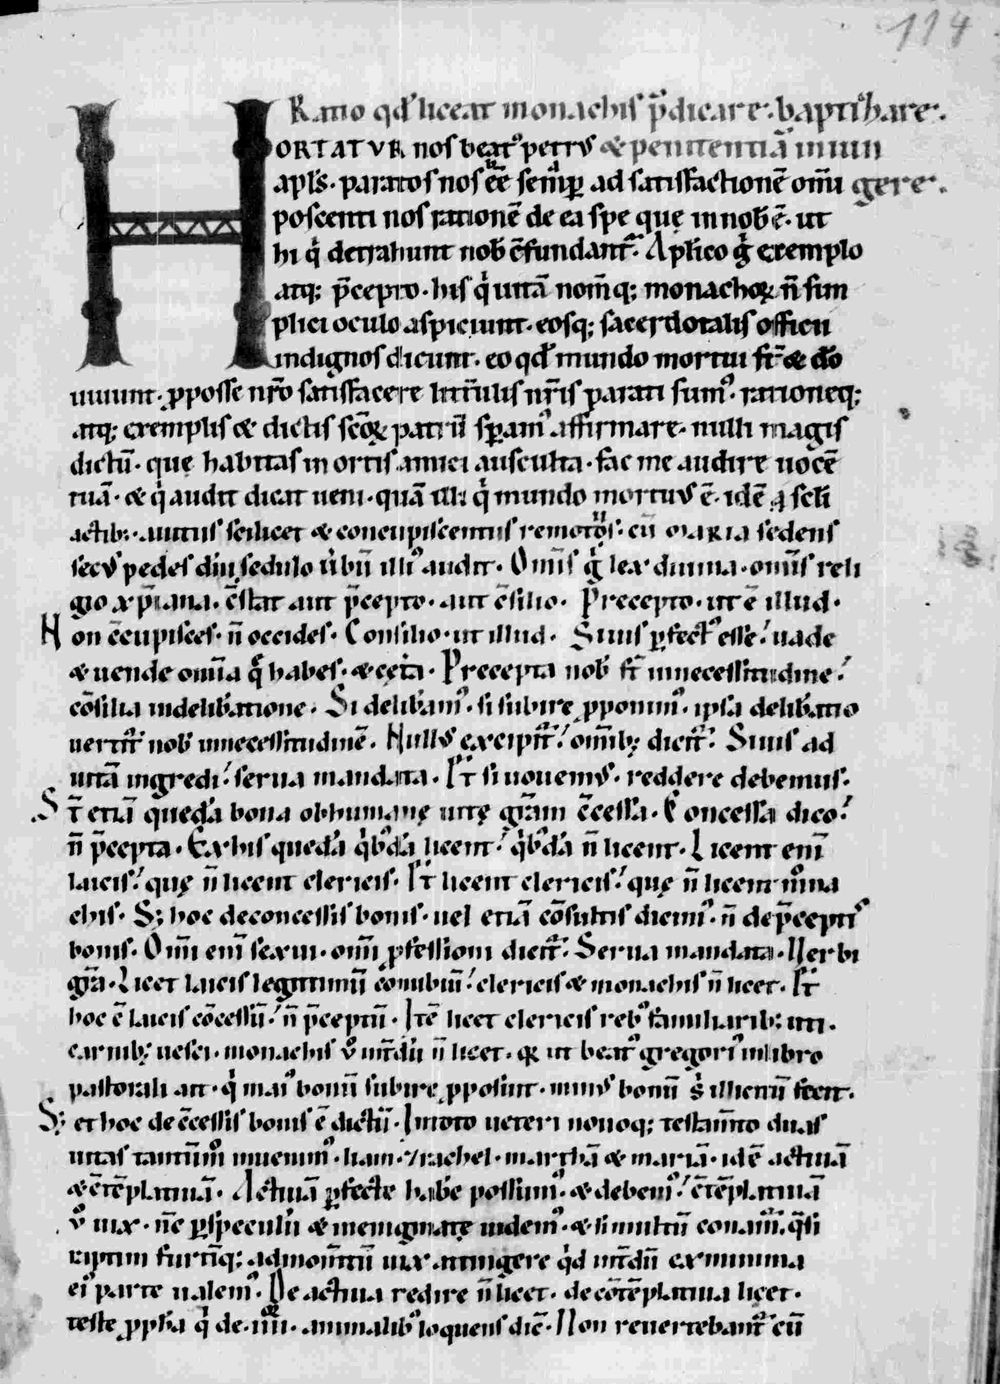 114
Ratio qd' liceat monachis p̄dicare· baptizare·
HORTATVR nos beat' petrus & penitentiā iniun
apl's· paratos nos ēē semp̱ ad satisfactionē om̄i gere·
poscenti nos rationē de ea spe quę in nob̄ ē· ut
hi q̇ detrahunt nob̄ c̄fundant᷑· Aplico ġ exemplo
atq; p̄cepto· his q̇ uitā nom̄q; monachoꝝ n̄ sim
plici oculo aspiciunt· eosq; sacerdotalis officii
indignos dicunt· eo qd' mundo mortui st̄ & dō
uiuunt· ꝓposse nr̄o satisfacere litt̄ulis nr̄is parati sum'· rationeq;
atq; exemplis & dictis sc̄oꝝ patrū speram' affirmare· nulli magis
dictū· quę habitas in ortis amici ausculta· fac me audire uocē
tuā· & q̇ audit dicat ueni· quā illi q̇ mundo mortuus ē· idē a sc̄li
actib;· uitiis scilicet & concupiscentiis remotos· cū maria sedens
secus pedes dn̄i sedulo u̇bū illi' audit· Om̄is ġ lex diuina· om̄is reli
gio xp̄iana· c̄stat aut p̄cepto· aut c̄silio· Precepto· ut ē illud·
Non c̄cupisces· n̄ occides· Consilio· ut illud· Si uis ꝑfect' esse· uade
& uende om̄ia q̄ habes· & cęta· Precepta nob̄ st̄ in necessitudine·
cōsilia in delib̄atione· Si delib̄am'· si subire ꝓponim'· ipsa delib̄atio
uertit᷑ nob̄ in necessitudinē· Nullus excipit᷑· om̄ib; dicit᷑· Si uis ad
uitā ingredi· serua mandata· It̄ si uouemus· reddere debemus·
St̄ etiā quedā bona ob humanę uitę gr̄am c̄cessa· Concessa dico·
n̄ p̄cepta· Ex his quedā q̇bdā licent· q̇bdā n̄ licent· Licent enī
laicis· quę n̄ licent clericis· It̄ licent clericis· quę n̄ licent mona
chis· S; hoc de concessis bonis· uel etiā cōsultis dicim'· n̄ de p̄ceptis
bonis· Om̄i enī sexui· om̄i ꝓfessioni dicit᷑· Serua mandata· Verbi
gr̄a· Licet laicis legitimū conubiū· clericis & monachis n̄ licet· St̄
hoc ē laicis cōcessū· n̄ p̄ceptū· Itē licet clericis reb' familiarib; uti·
carnib; uesci· monachis ů int̄dū n̄ licet· q̇ ut beat' gregori' in libro
pastorali ait· q̇ mai' bonū subire ꝓposuit· minus bonū s̄ illicitū fecit·
S; et hoc de c̄cessis bonis ē dictū· In toto ueteri nouoq; testam̄to duas
uitas tantūm̄ inuenim'· liam· ⁊ rachel· marthā & mariā· idē actiuā
& c̄tēplatiuā· Actiuā ꝑfecte habe possum'· & debem'· c̄tēplatiuā
ů uix· nc̄ ꝑ speculū & in enigmate uidem'· & si multū conam᷑· q̇si
raptim furtīq; admonitū uix attingere q̇d int̄dū ex minima
ei' parte ualem'· De actiua redire n̄ licet· de cōtēplatiua licet·
teste ꝓph̄a q̇ de· iiii· animalib' loquens dic̄· Non reuertebant᷑ cū